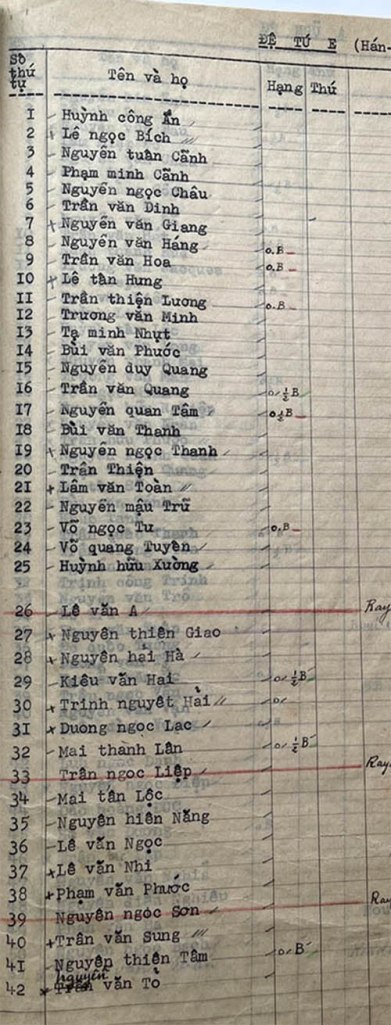 ĐỆ TỨ E (Hán-
Số thứ tự Tên và họ Hạng Thứ
1 Huỳnh công Ẩn
2 Lê ngọc Bích
3 Nguyễn tuân Cảnh
4 Phạm minh Cảnh
5 Nguyễn ngọc Châu
6 Trần văn Dinh
7 Nguyễn văn Giang
8 Nguyễn văn Háng o.B
9 Trần văn Hoa o.B
10 Lê tân Hưng
11 Trần thiện Lương o.B
12 Trương văn Minh
13 Tạ minh Nhựt
14 Bùi văn Phước
15 Nguyễn duy Quang
16 Trần văn Quang o/ ½ B
17 Nguyễn quan Tâm o ½ B
18 Bùi văn Thanh
19 Nguyễn ngọc Thanh
20 Trần Thiện
21 Lâm văn Toàn
22 Nguyễn mậu Trữ
23 Võ ngọc Tư o.B
24 Võ quang Tuyên
25 Huỳnh hữu Xường
26 Lê văn A Ray
27 Nguyễn thiên Giao
28 Nguyễn hải Hà
29 Kiều văn Hai o/ ½ B
30 Trinh nguyệt Hải o/
31 Duong ngọc Lac
32 Mai thanh Lân o/ ½ B
33 Trần ngọc Liệp Ray
34 Mai tấn Lộc
35 Nguyễn hiên Năng
36 Lê văn Ngọc
37 Lê văn Nhi
38 Phạm văn Phước
39 Nguyễn ngọc Sơn Ray
40 Trần văn Sung
41 Nguyễn thiên Tâm o/ B
nguyễn
42 Trần văn Tỏ